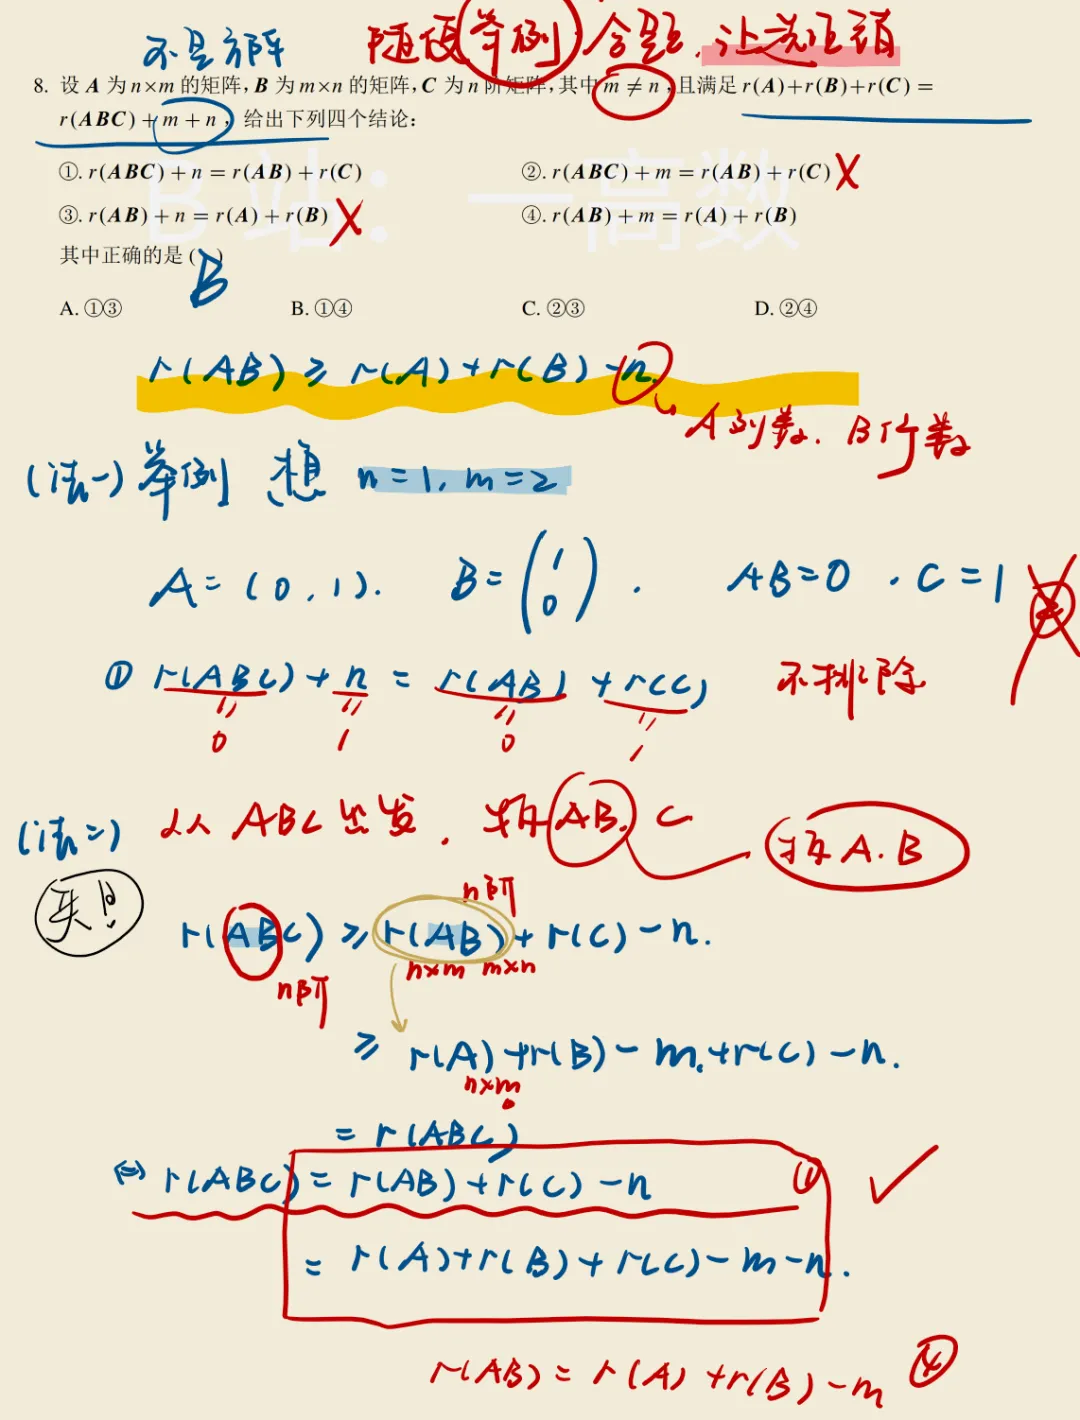 不是方阵
随便举例合题,让选项错
8. 设 A 为 n×m 的矩阵,B 为 m×n 的矩阵,C 为 n 阶矩阵,其中 m ≠ n,且满足 r(A)+r(B)+r(C) =
r(ABC)+m+n,给出下列四个结论:
①. r(ABC)+n = r(AB)+r(C) ②. r(ABC)+m = r(AB)+r(C) X
③. r(AB)+n = r(A)+r(B) X ④. r(AB)+m = r(A)+r(B)
B站: 一高数
其中正确的是 ( ) B
A. ①③ B. ①④ C. ②③ D. ②④
r(AB) ≥ r(A)+r(B)-n.
A列数. B行数
(法一) 举例 想 n=1, m=2
A=(0,1). B=(1 0). AB=0 . C=1
① r(ABC)+n = r(AB)+r(C) 不排除
0 1 0 1
(法二) 从ABC出发, 拆AB, C
拆A.B
n阶
r(ABC) ≥ r(AB)+r(C)-n.
n×m m×n
n阶
≥ r(A)+r(B)-m+r(C)-n.
n×m
= r(ABC)
⇔ r(ABC) = r(AB)+r(C)-n ① ✓
= r(A)+r(B)+r(C)-m-n.
r(AB) = r(A)+r(B)-m ④